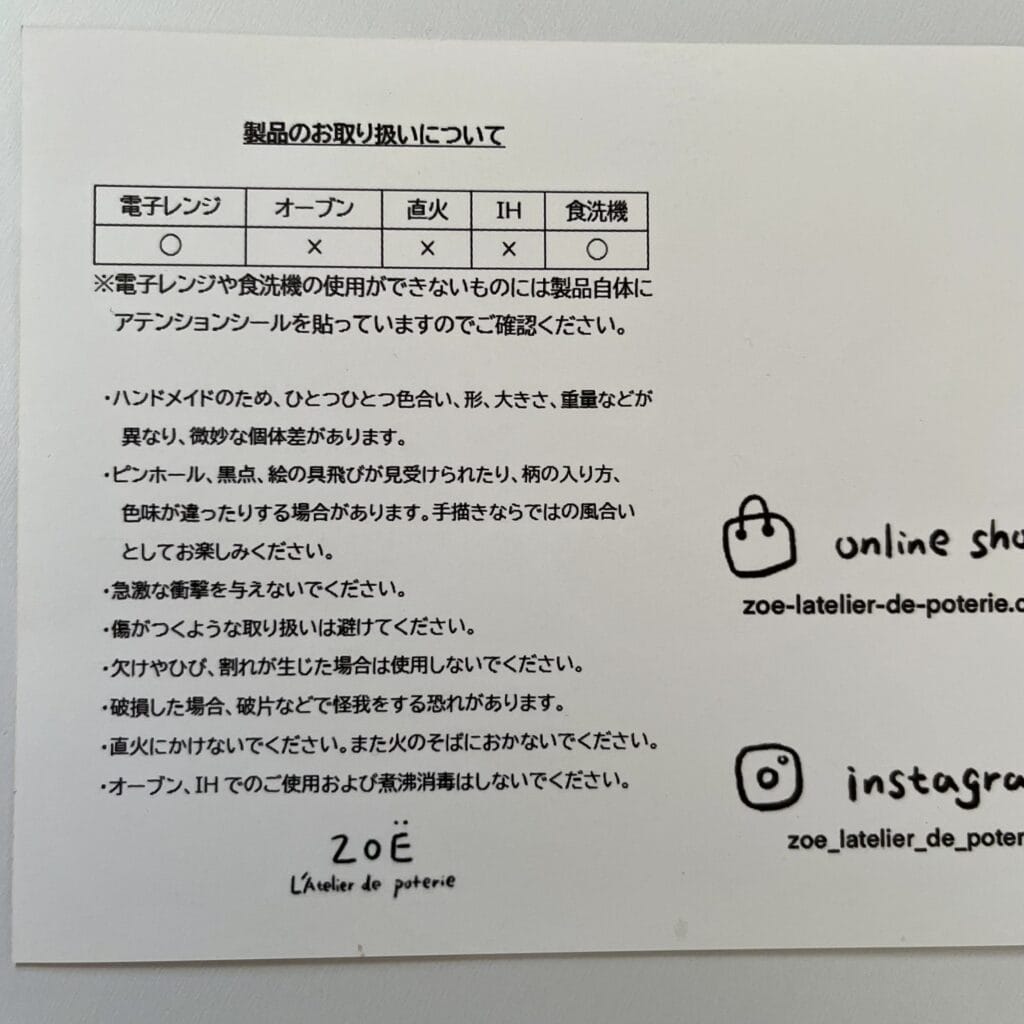 製品のお取り扱いについて
電子レンジ オーブン 直火 IH 食洗機
○ × × × ○
※電子レンジや食洗機の使用ができないものには製品自体に
アテンションシールを貼っていますのでご確認ください。
・ハンドメイドのため、ひとつひとつ色合い、形、大きさ、重量などが
異なり、微妙な個体差があります。
・ピンホール、黒点、絵の具飛びが見受けられたり、柄の入り方、
色味が違ったりする場合があります。手描きならではの風合い
としてお楽しみください。
・急激な衝撃を与えないでください。
・傷がつくような取り扱いは避けてください。
・欠けやひび、割れが生じた場合は使用しないでください。
・破損した場合、破片などで怪我をする恐れがあります。
・直火にかけないでください。また火のそばにおかないでください。
・オーブン、IHでのご使用および煮沸消毒はしないでください。
ZOË
L'Atelier de poterie
online sho
zoe-latelier-de-poterie.c
instagra
zoe_latelier_de_poter